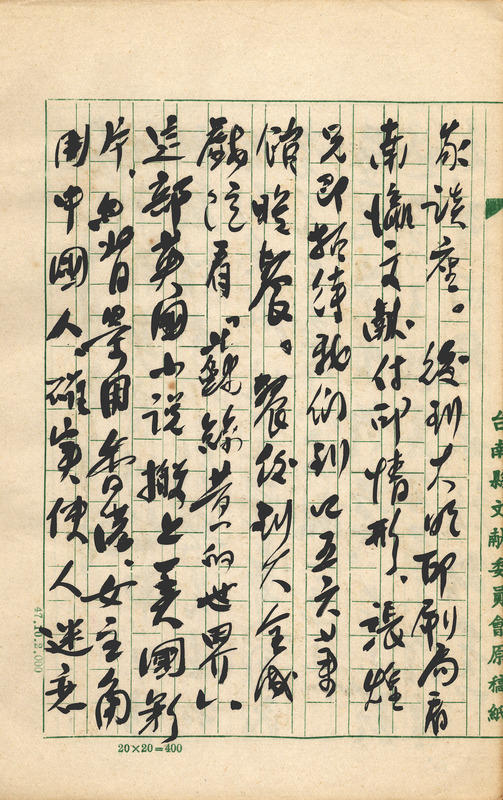 台南縣文獻委員會原稿紙
家談座。後到大明印刷局看
南瀛文獻付印情形、張煌
兄即招待我們到四五六菜
館晚餐。餐後到大全成
戲院看「蘇絲黃的世界」、
這部英國小說搬上美國彩
片、而背景用香港、女主角
用中國人、確實使人迷戀
47.10.2,000
20×20=400